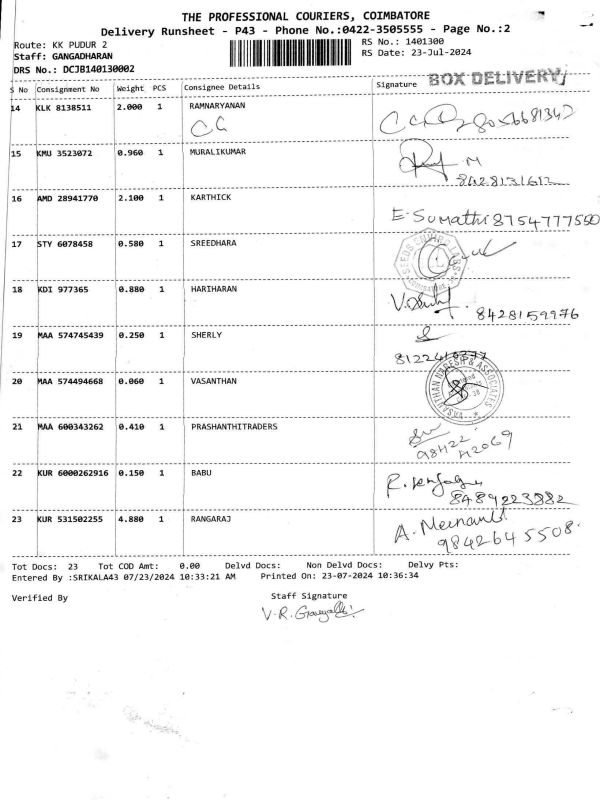 THE PROFESSIONAL COURIERS, COIMBATORE
Delivery Runsheet - P43 - Phone No.:0422-3505555 - Page No.:2
Route: KK PUDUR 2
RS No.: 1401300
Staff: GANGADHARAN
RS Date: 23-Jul-2024
DRS No.: DCJB140130002
BOX DELIVERY
S No Consignment No Weight PCS Consignee Details Signature
14 KLK 8138511 2.000 1 RAMNARYANAN
15 KMU 3523072 0.960 1 MURALIKUMAR
8428131612
16 AMD 28941770 2.100 1 KARTHICK
E. Sumathi 8754777550
17 STY 6078458 0.580 1 SREEDHARA
18 KDI 977365 0.880 1 HARIHARAN
8428159976
19 MAA 574745439 0.250 1 SHERLY
20 MAA 574494668 0.060 1 VASANTHAN
21 MAA 600343262 0.410 1 PRASHANTHITRADERS
22 KUR 6000262916 0.150 1 BABU
8489223882
23 KUR 531502255 4.880 1 RANGARAJ
9842645508
Tot Docs: 23 Tot COD Amt: 0.00 Delvd Docs: Non Delvd Docs: Delvy Pts:
Entered By :SRIKALA43 07/23/2024 10:33:21 AM Printed On: 23-07-2024 10:36:34
Verified By Staff Signature